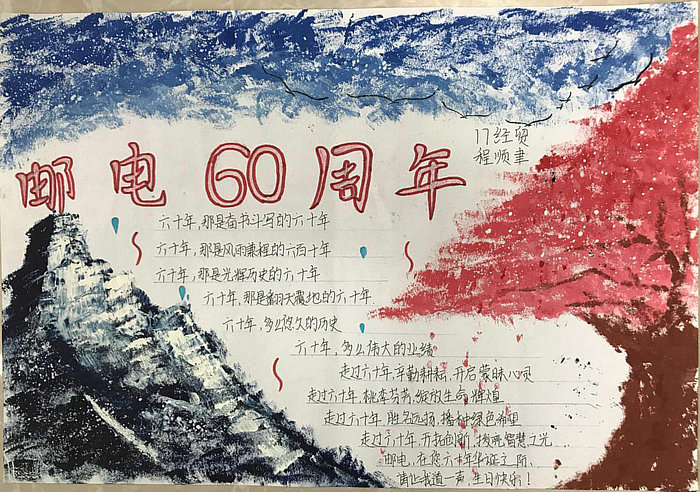 邮电60周年
17经贸
程顺聿
六十年,那是奋书斗写的六十年
六十年,那是风雨兼程的六百十年
六十年,那是光辉历史的六十年
六十年,那是翻天震地的六十年
六十年,多么悠久的历史
六十年,多么伟大的业绩
走过六十年,辛勤耕耘,开启蒙昧心灵
走过六十年,桃李芬芳,绽放生命辉煌
走过六十年,胜名远扬,播种绿色希望
走过六十年,开拓创新,搜索智慧之光...
邮电,在您六十年华诞之际
请让我道一声,生日快乐!